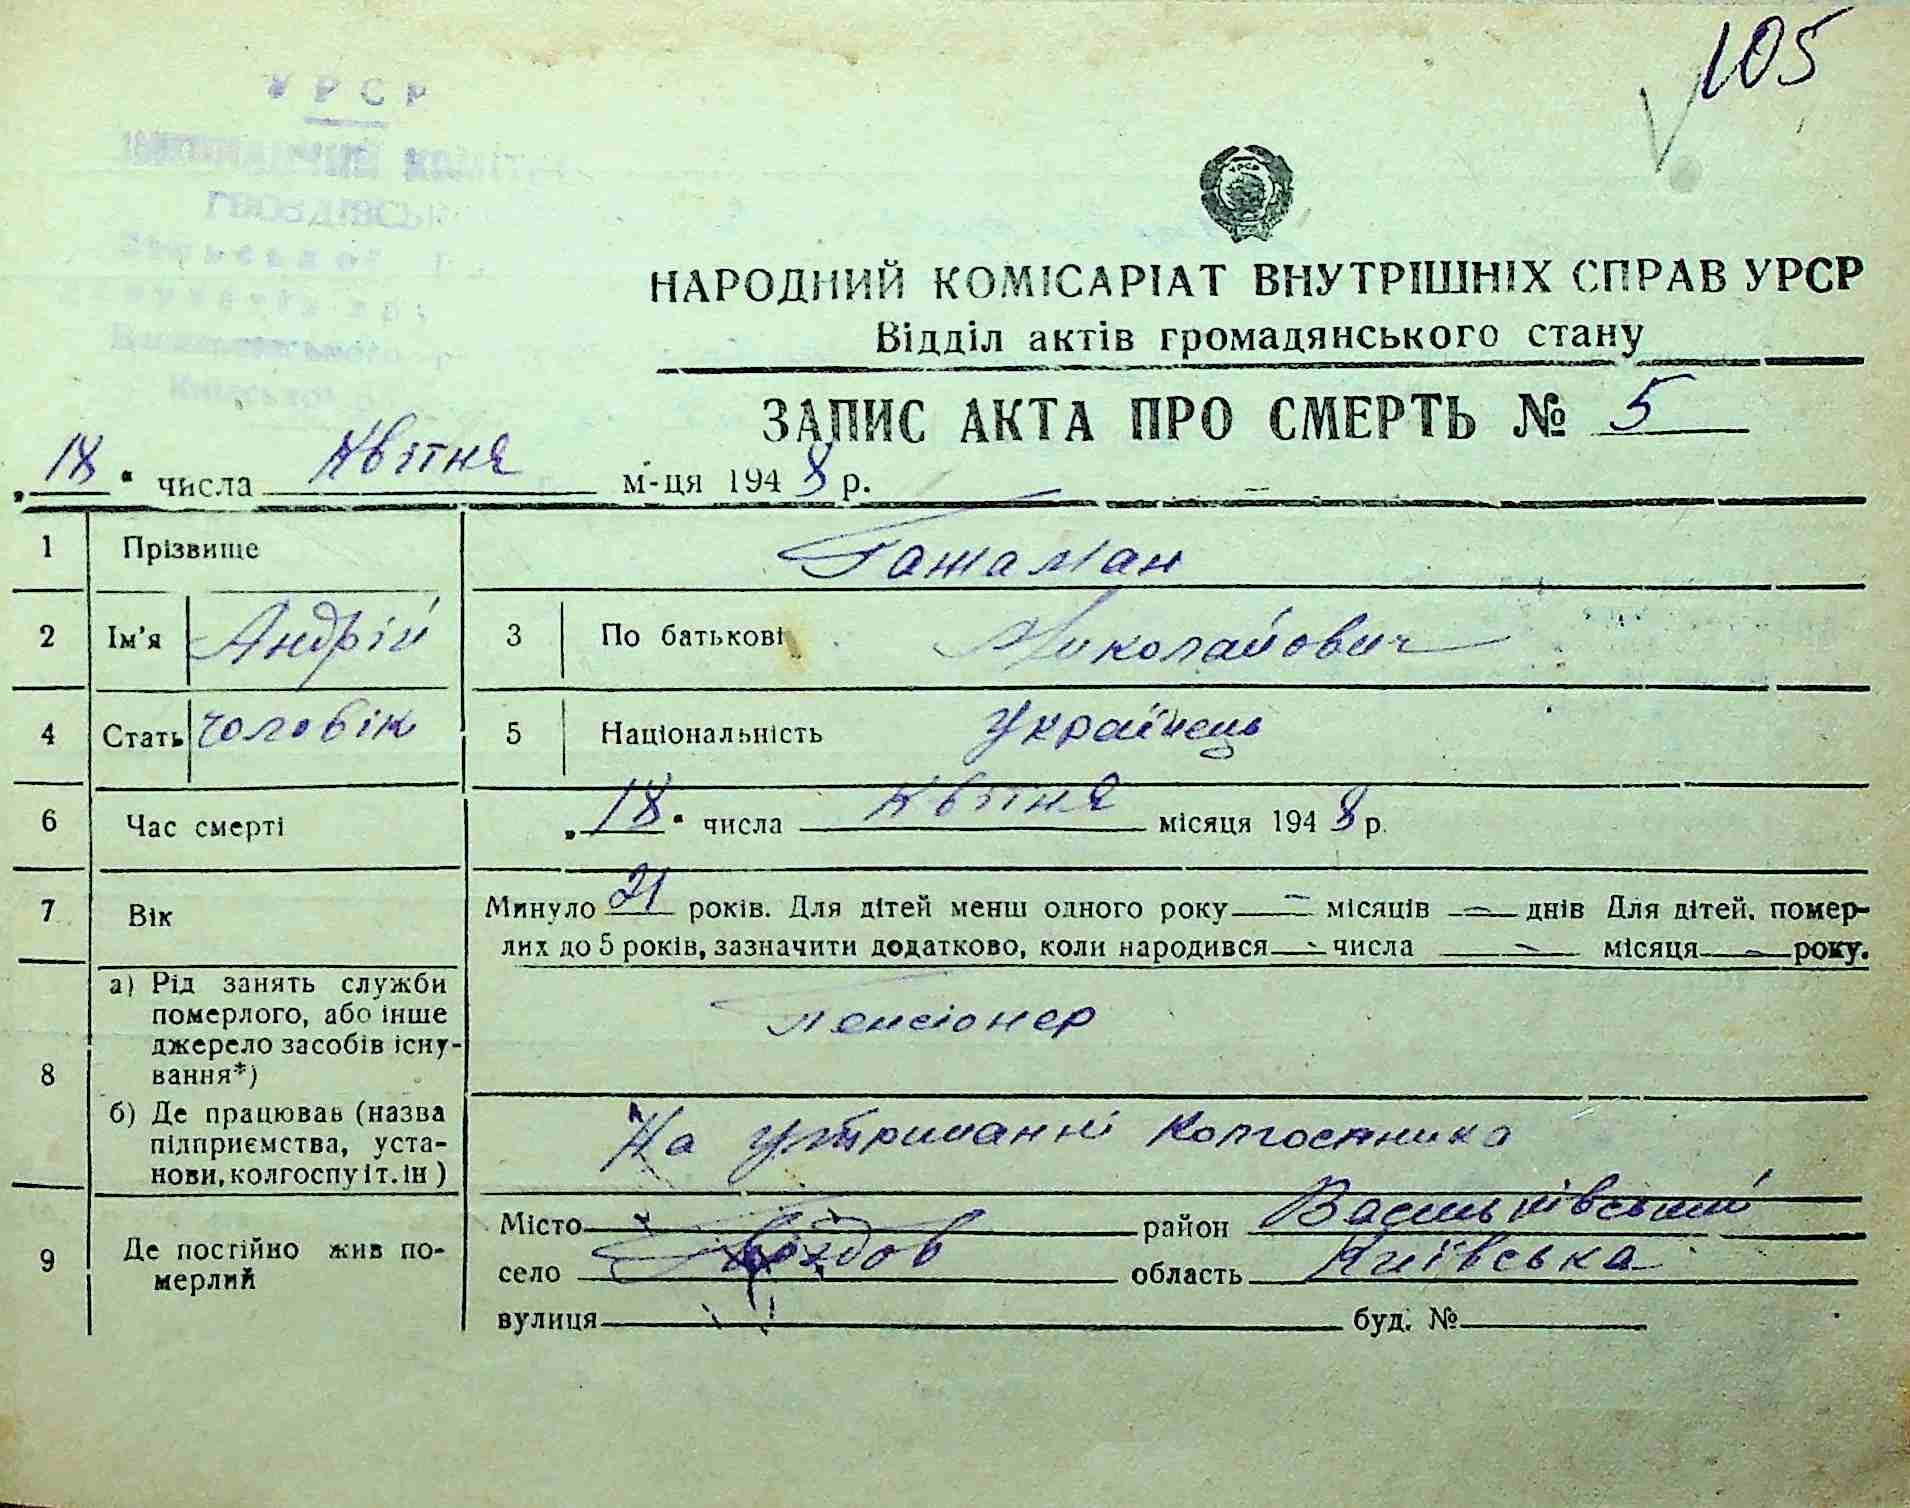 105
УРСР
ГВОЗДІВСЬК
Київської
НАРОДНИЙ КОМІСАРІАТ ВНУТРІШНІХ СПРАВ УРСР
Відділ актів громадянського стану
ЗАПИС АКТА ПРО СМЕРТЬ № 5
„18" числа Квітня м-ця 1948 р.
1 Прізвище Гатаман
2 Ім'я Андрій 3 По батькові Миколайович
4 Стать чоловік 5 Національність Українець
6 Час смерті „18" числа Квітня місяця 1948 р.
7 Вік Минуло 21 років. Для дітей менш одного року — місяців — днів Для дітей, помер-
лих до 5 років, зазначити додатково, коли народився — числа — місяця — року.
8 а) Рід занять служби померлого, або інше джерело засобів існу-вання*) Пенсіонер
б) Де працював (назва підприємства, уста-нови, колгоспу і т. ін) На утриманні колгоспника
9 Де постійно жив по-мерлий Місто район Васильківський
село Гвоздов область Київська
вулиця буд. №